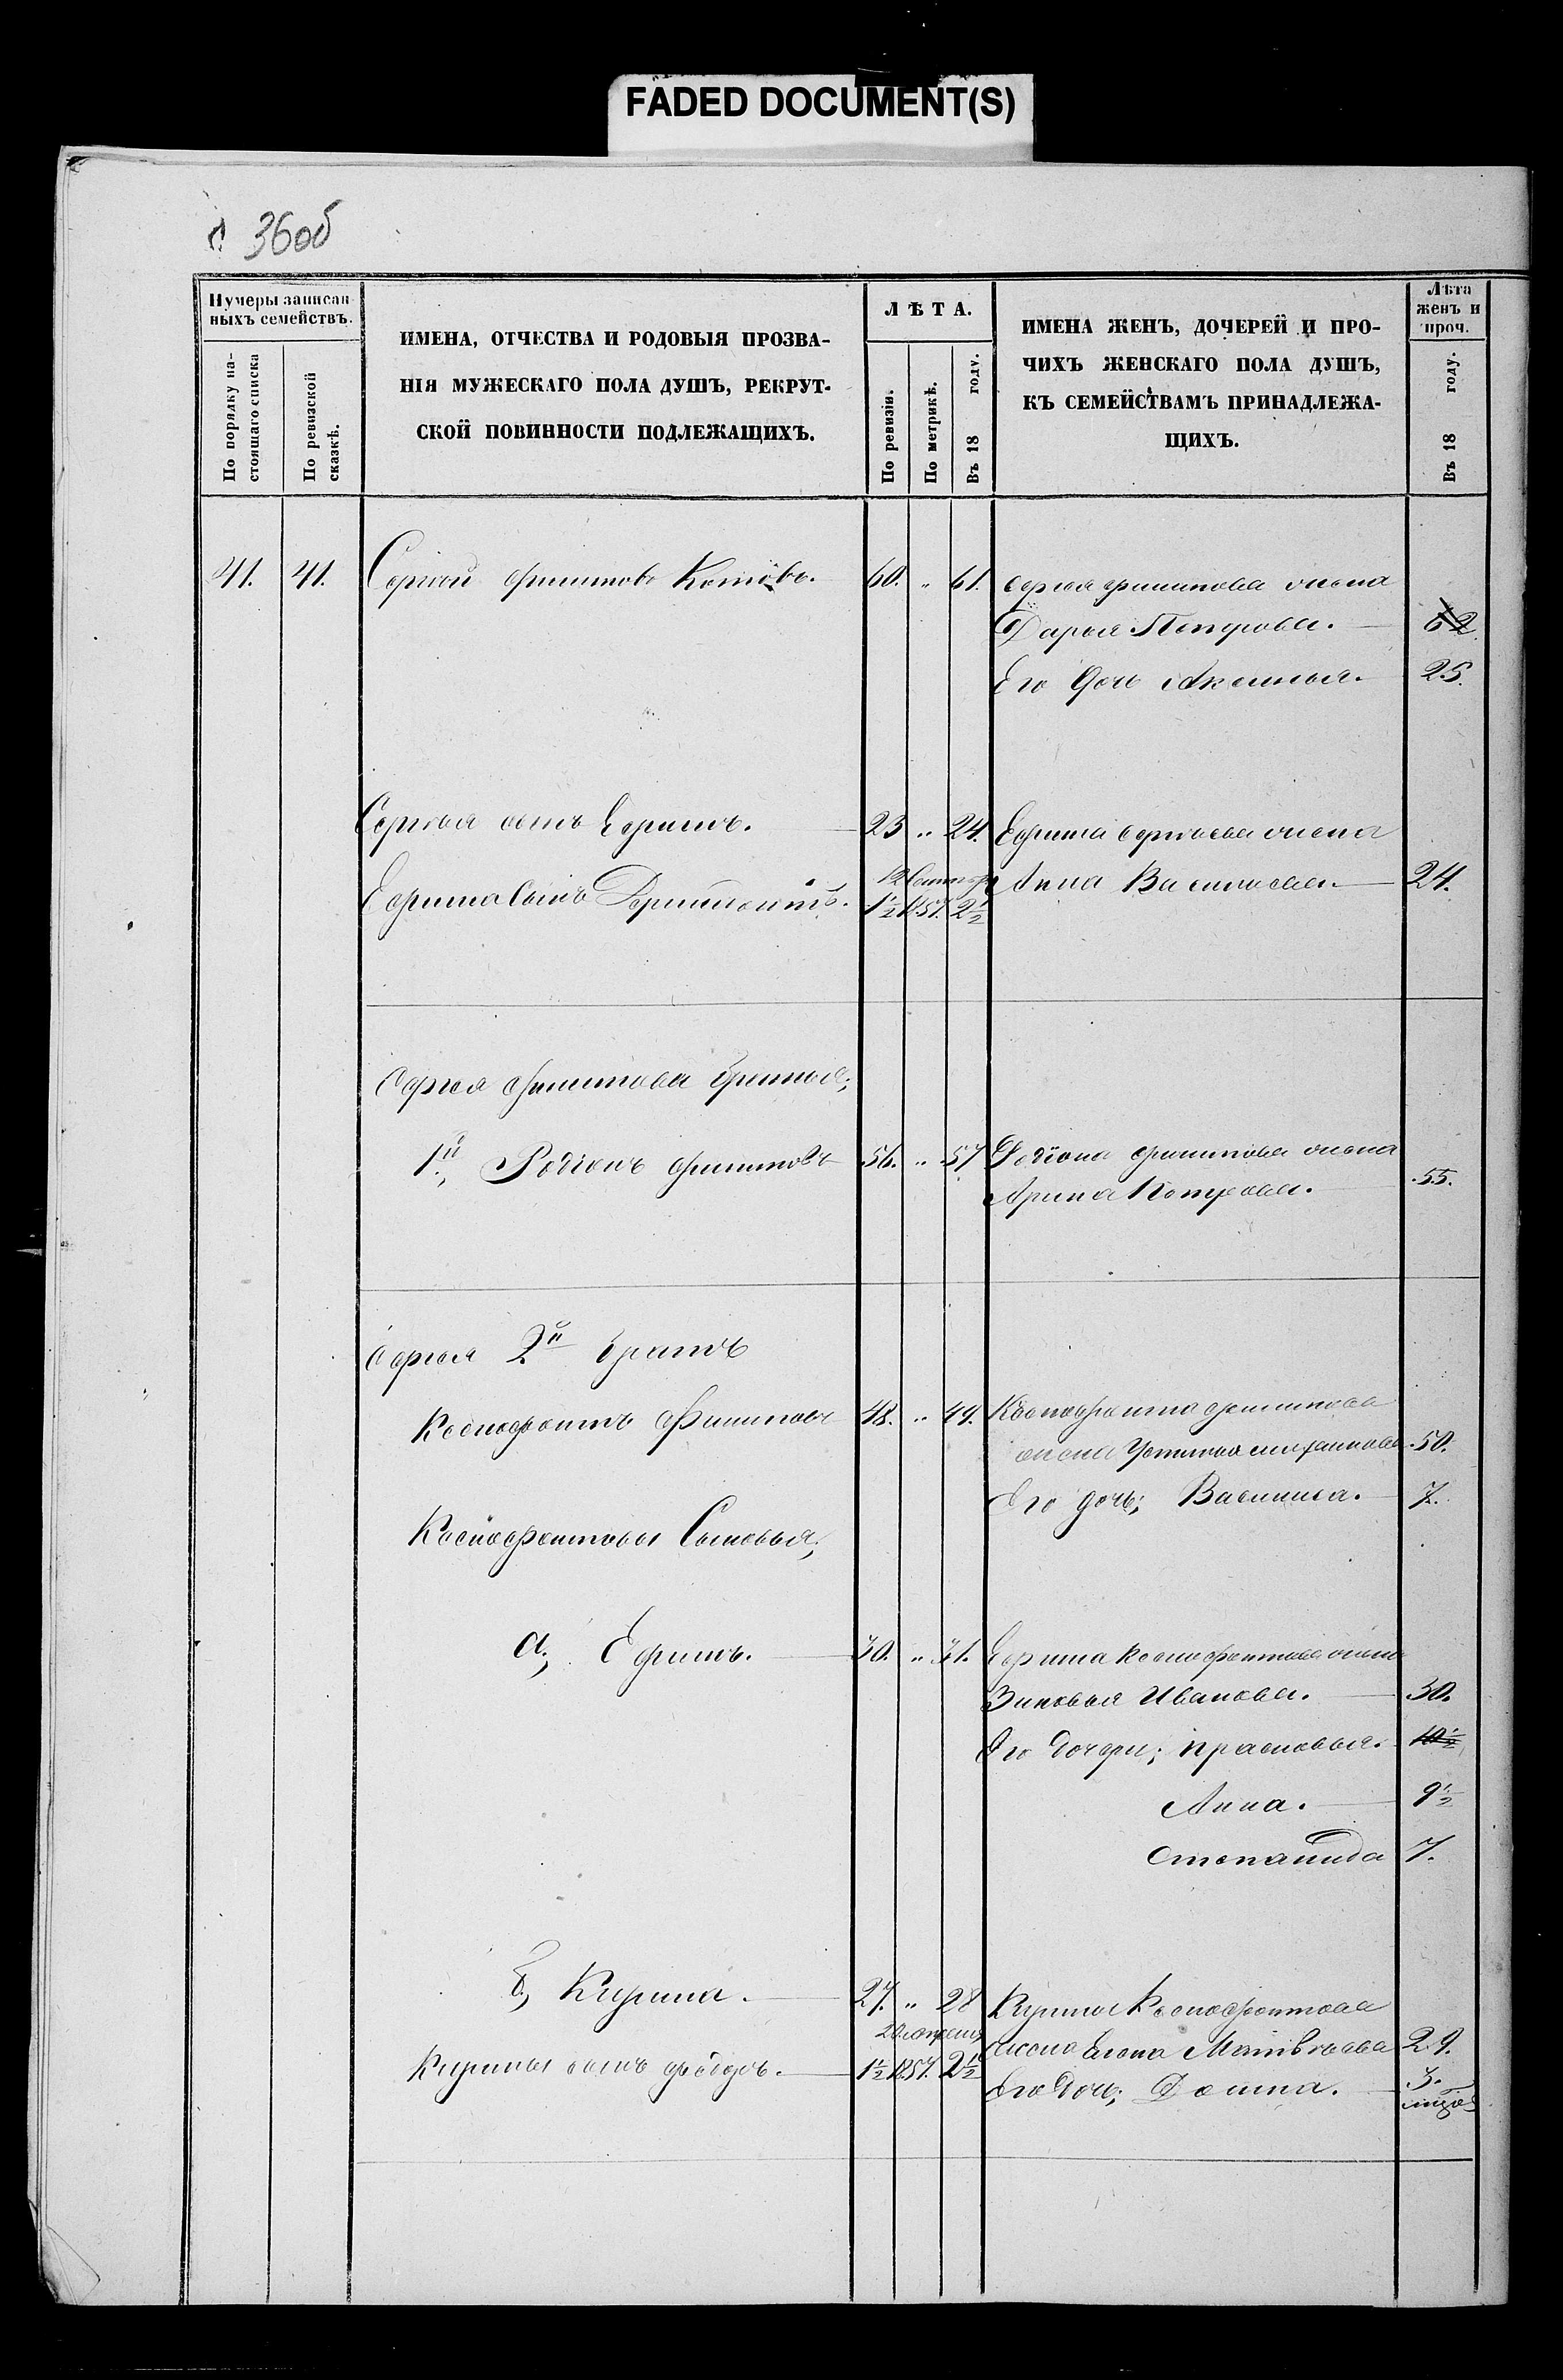 FADED DOCUMENT(S)
36об
Нумеры записан-
ныхъ семействъ.
По порядку на-
стоящаго списка
По ревизской
сказкѣ.
ИМЕНА, ОТЧЕСТВА И РОДОВЫЯ ПРОЗВА-
НІЯ МУЖЕСКАГО ПОЛА ДУШЪ, РЕКРУТ-
СКОЙ ПОВИННОСТИ ПОДЛЕЖАЩИХЪ.
ЛѢТА.
По ревизіи.
По метрикѣ.
Въ 18 году.
ИМЕНА ЖЕНЪ, ДОЧЕРЕЙ И ПРО-
ЧИХЪ ЖЕНСКАГО ПОЛА ДУШЪ,
КЪ СЕМЕЙСТВАМЪ ПРИНАДЛЕЖА-
ЩИХЪ.
Лѣта
женъ и
проч.
Въ 18 году.
41. 41. Сергей Филиповъ Котовъ. 60. " 61. Сергея Филипова жена
Дарья Петрова. 62
Его дочь Аксинья. 25.
Сергея сынъ Ефимъ. 23 " 24. Ефима Сергеева жена
Ефима Сынъ 1½ 1857. 2½ Анна Васильева. 24.
Сергея Филипова братья;
1й, Родіонъ Филиповъ 56. " 57 Родіона Филипова жена
Арина Петрова. 55.
Сергея 2й братъ
Ксенофонтъ Филиповъ 48. " 49. Ксенофонта Филипова
жена Устинья 50.
Его дочь; Василиса. 7.
Ксенофонтовы Сыновья;
а, Ефимъ. 30. " 31. Ефима Ксенофонтова жена
Зиновья Иванова. 30.
Его дочери; Прасковья. 10½
Анна. 9½
Степанида 7.
б, Кирила. 27. " 28 Кирилы Ксенофонтова
20 апреля
жена Елена Матвѣева 29.
Кирилы сынъ Фёдоръ. 1½ 1857. 2½
Его дочь; Домна. 3.